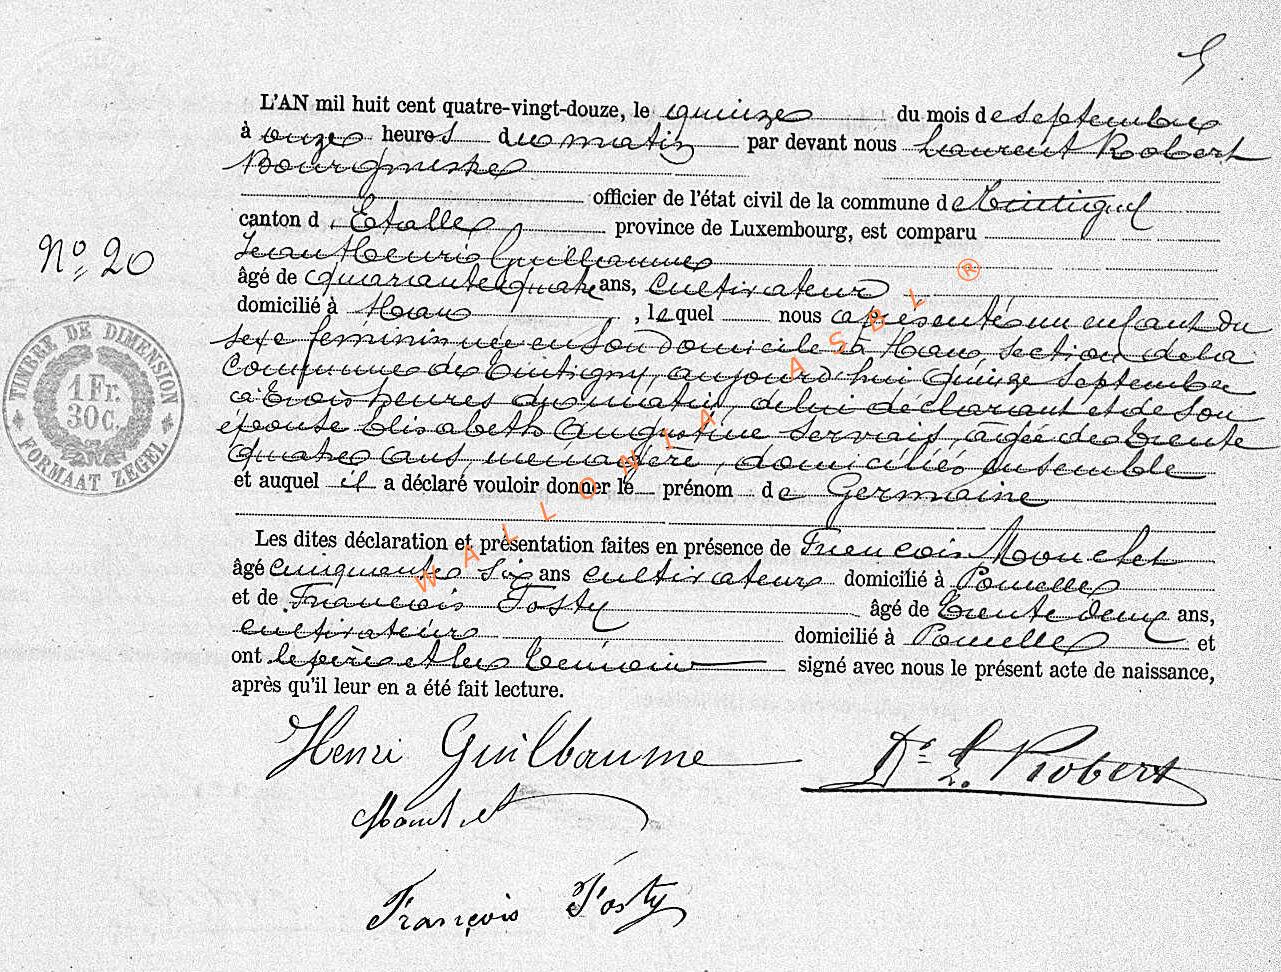 5
L'AN mil huit cent quatre-vingt-douze, le quinze du mois de septembre
à onze heures du matin par devant nous Laurent Robert
Bourgmestre
officier de l'état civil de la commune de Tintigny
canton d'Etalle, province de Luxembourg, est comparu
Jean Henri Guillaume
âgé de quarante quatre ans, Cultivateur
domicilié à Han, lequel nous a présenté un enfant du
sexe féminin née en son domicile à Han section de la
Commune de Tintigny, aujourd'hui quinze septembre
à trois heures du matin, de lui déclarant et de son
épouse Elisabeth Augustine Servais, agée de trente
quatre ans, menagère, domiciliés ensemble
et auquel il a déclaré vouloir donner le prénom de Germaine
Les dites déclaration et présentation faites en présence de François
âgé cinquante six ans cultivateur domicilié à Poncelle
et de François Fosty âgé de trente deux ans,
cultivateur domicilié à Poncelle et
ont le père et les témoins signé avec nous le présent acte de naissance,
après qu'il leur en a été fait lecture.
No 20
TIMBRE DE DIMENSION
1 Fr.
30 c.
FORMAAT ZEGEL
WALLONIA ASBL ®
Henri Guillaume
Dr L. Robert
François Fosty